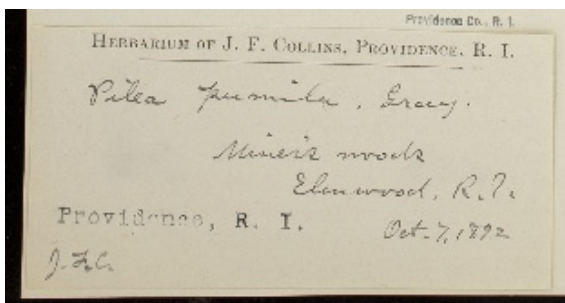 Providence Co., R. I.
HERBARIUM OF J. F. COLLINS, PROVIDENCE, R. I.
Pilea pumila, Gray.
Miner's woods
Elmwood, R.I.
Providence, R. I.
Oct. 7, 1892
J.F.C.